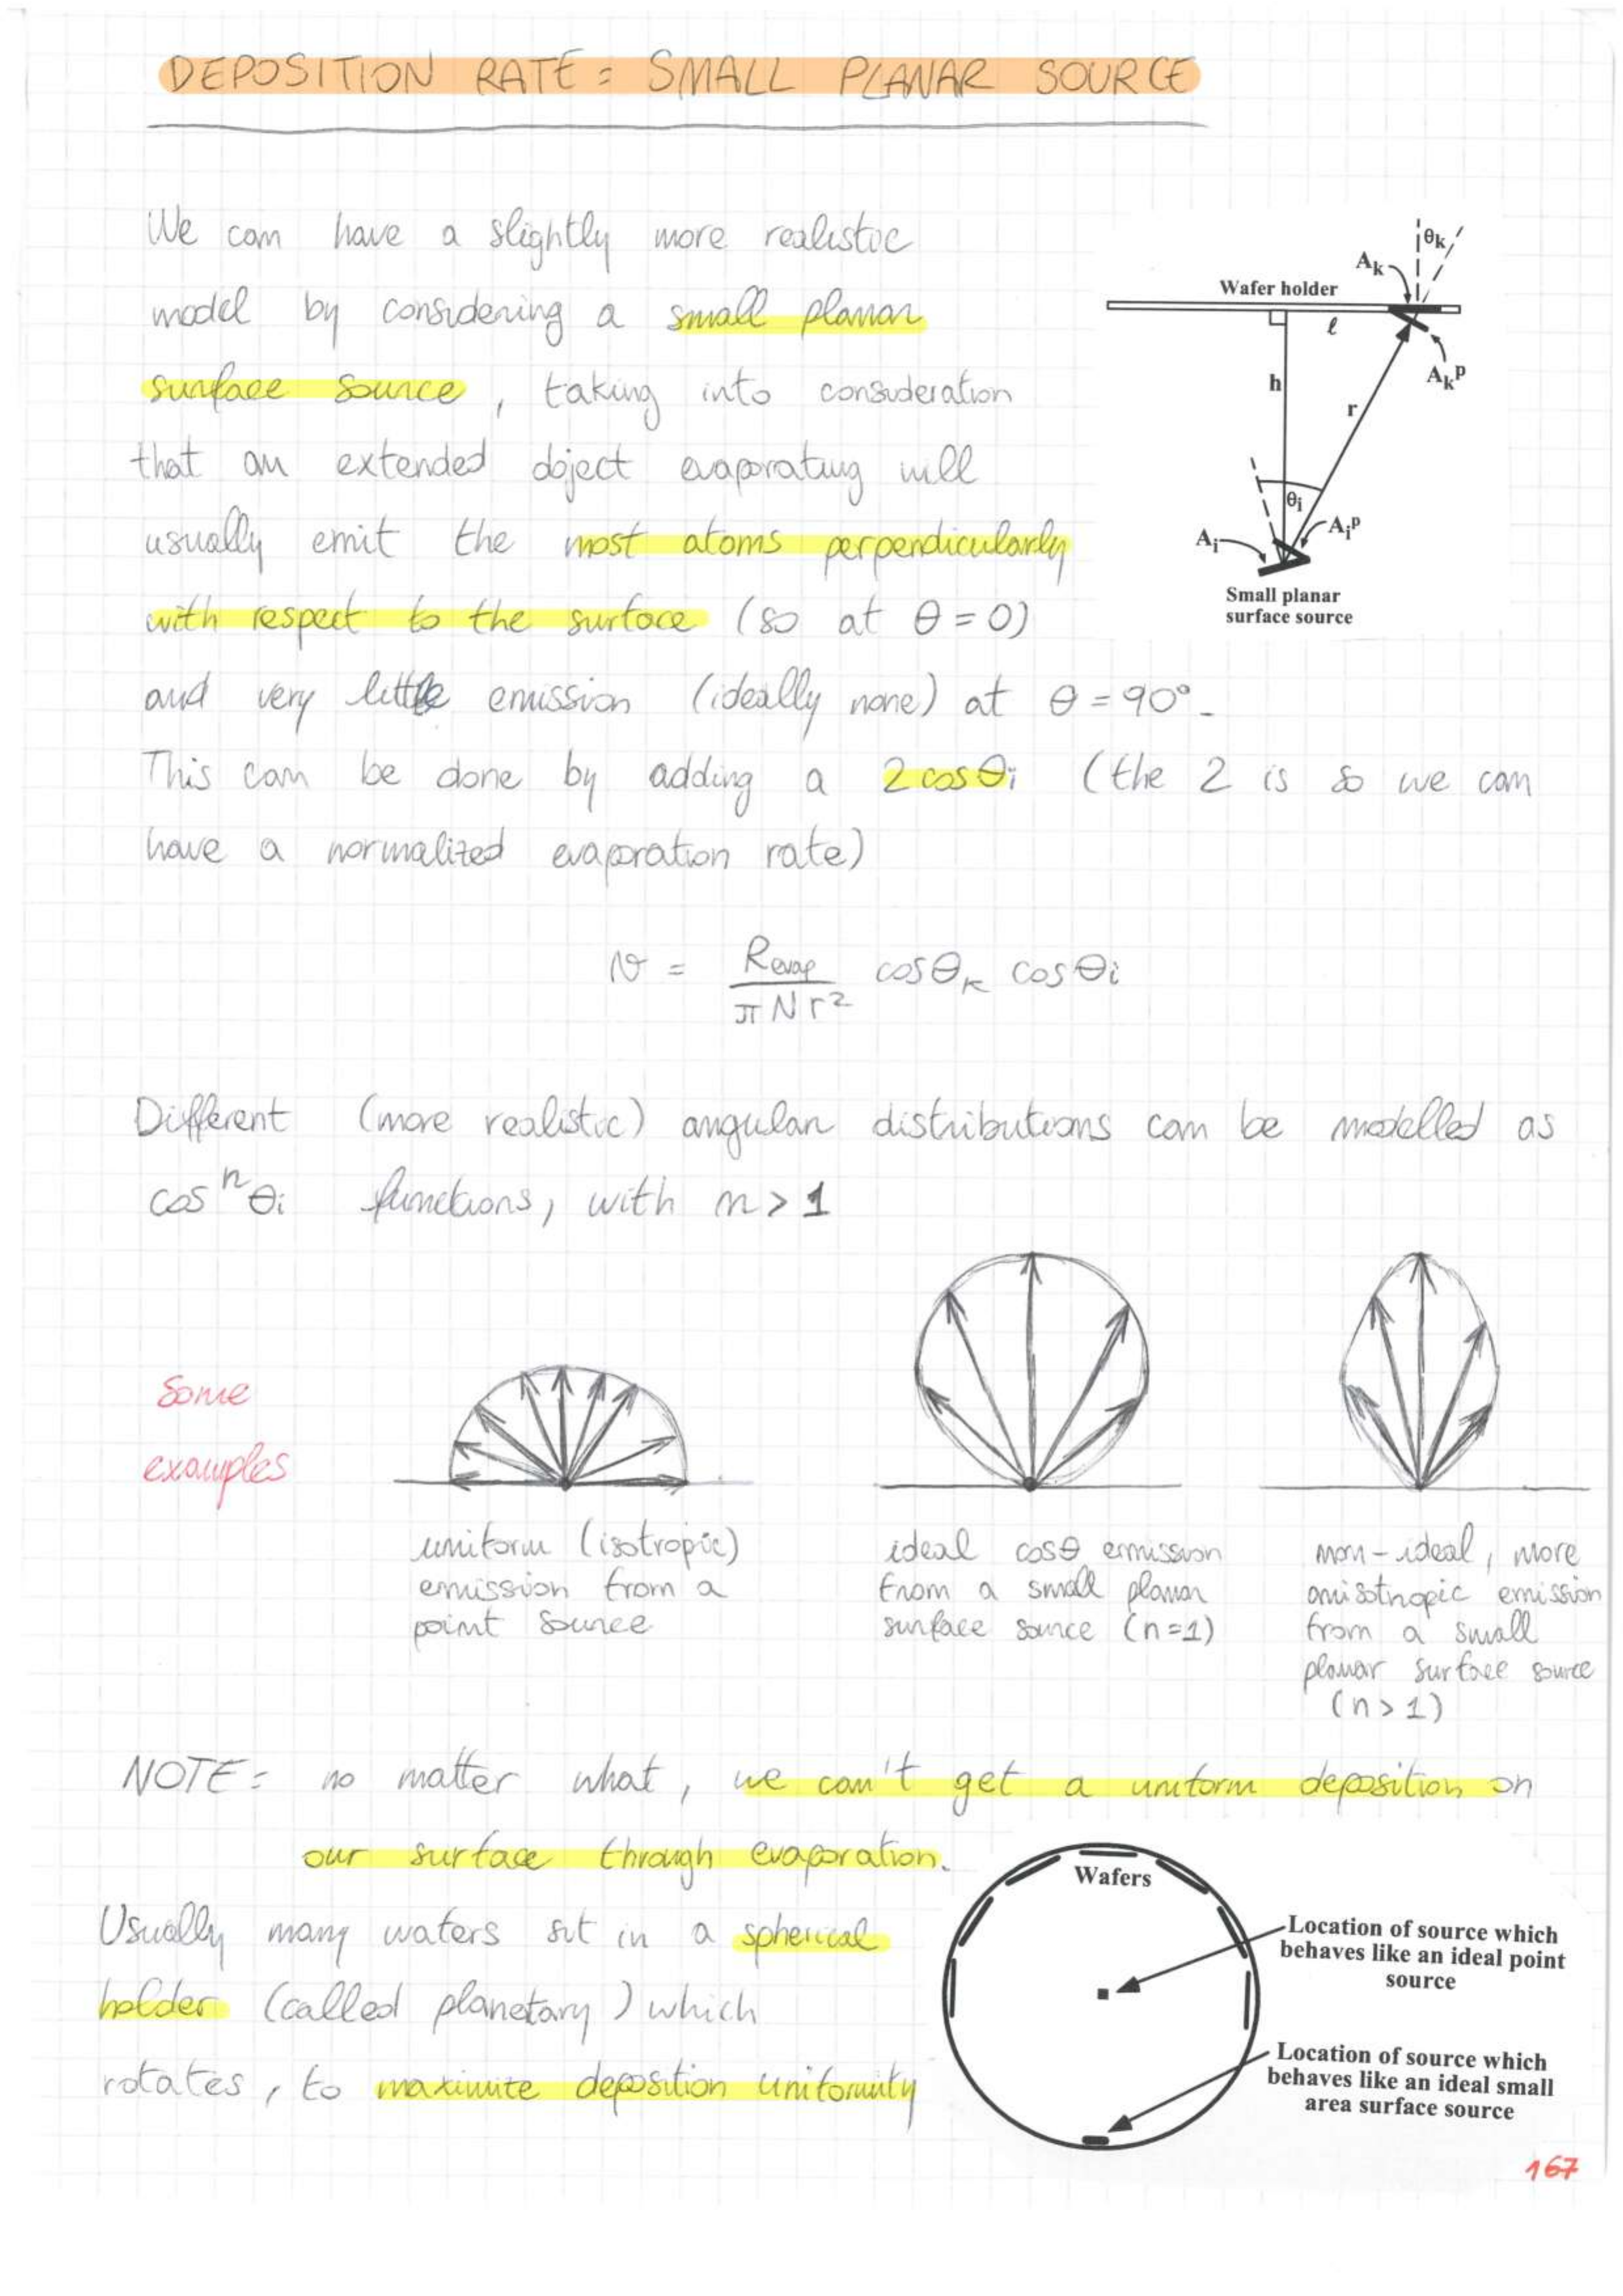 DEPOSITION RATE: SMALL PLANAR SOURCE
We can have a slightly more realistic
model by considering a small planar
surface source, taking into consideration
that an extended object evaporating will
usually emit the most atoms perpendicularly
with respect to the surface (so at θ = 0)
and very little emission (ideally none) at θ = 90°.
This can be done by adding a 2 cos θi (the 2 is so we can
have a normalized evaporation rate)
θk
Ak
Wafer holder
ℓ
AkP
h
r
θi
AiP
Ai
Small planar
surface source
v = Revap / πNr² cosθk cosθi
Different (more realistic) angular distributions can be modelled as
cosⁿθi functions, with n > 1
Some
examples
uniform (isotropic)
emission from a
point source
ideal cosθ emission
from a small planar
surface source (n=1)
non-ideal, more
anisotropic emission
from a small
planar surface source
(n > 1)
NOTE: no matter what, we can't get a uniform deposition on
our surface through evaporation.
Usually many wafers sit in a spherical
holder (called planetary) which
rotates, to maximize deposition uniformity
Wafers
Location of source which
behaves like an ideal point
source
Location of source which
behaves like an ideal small
area surface source
167